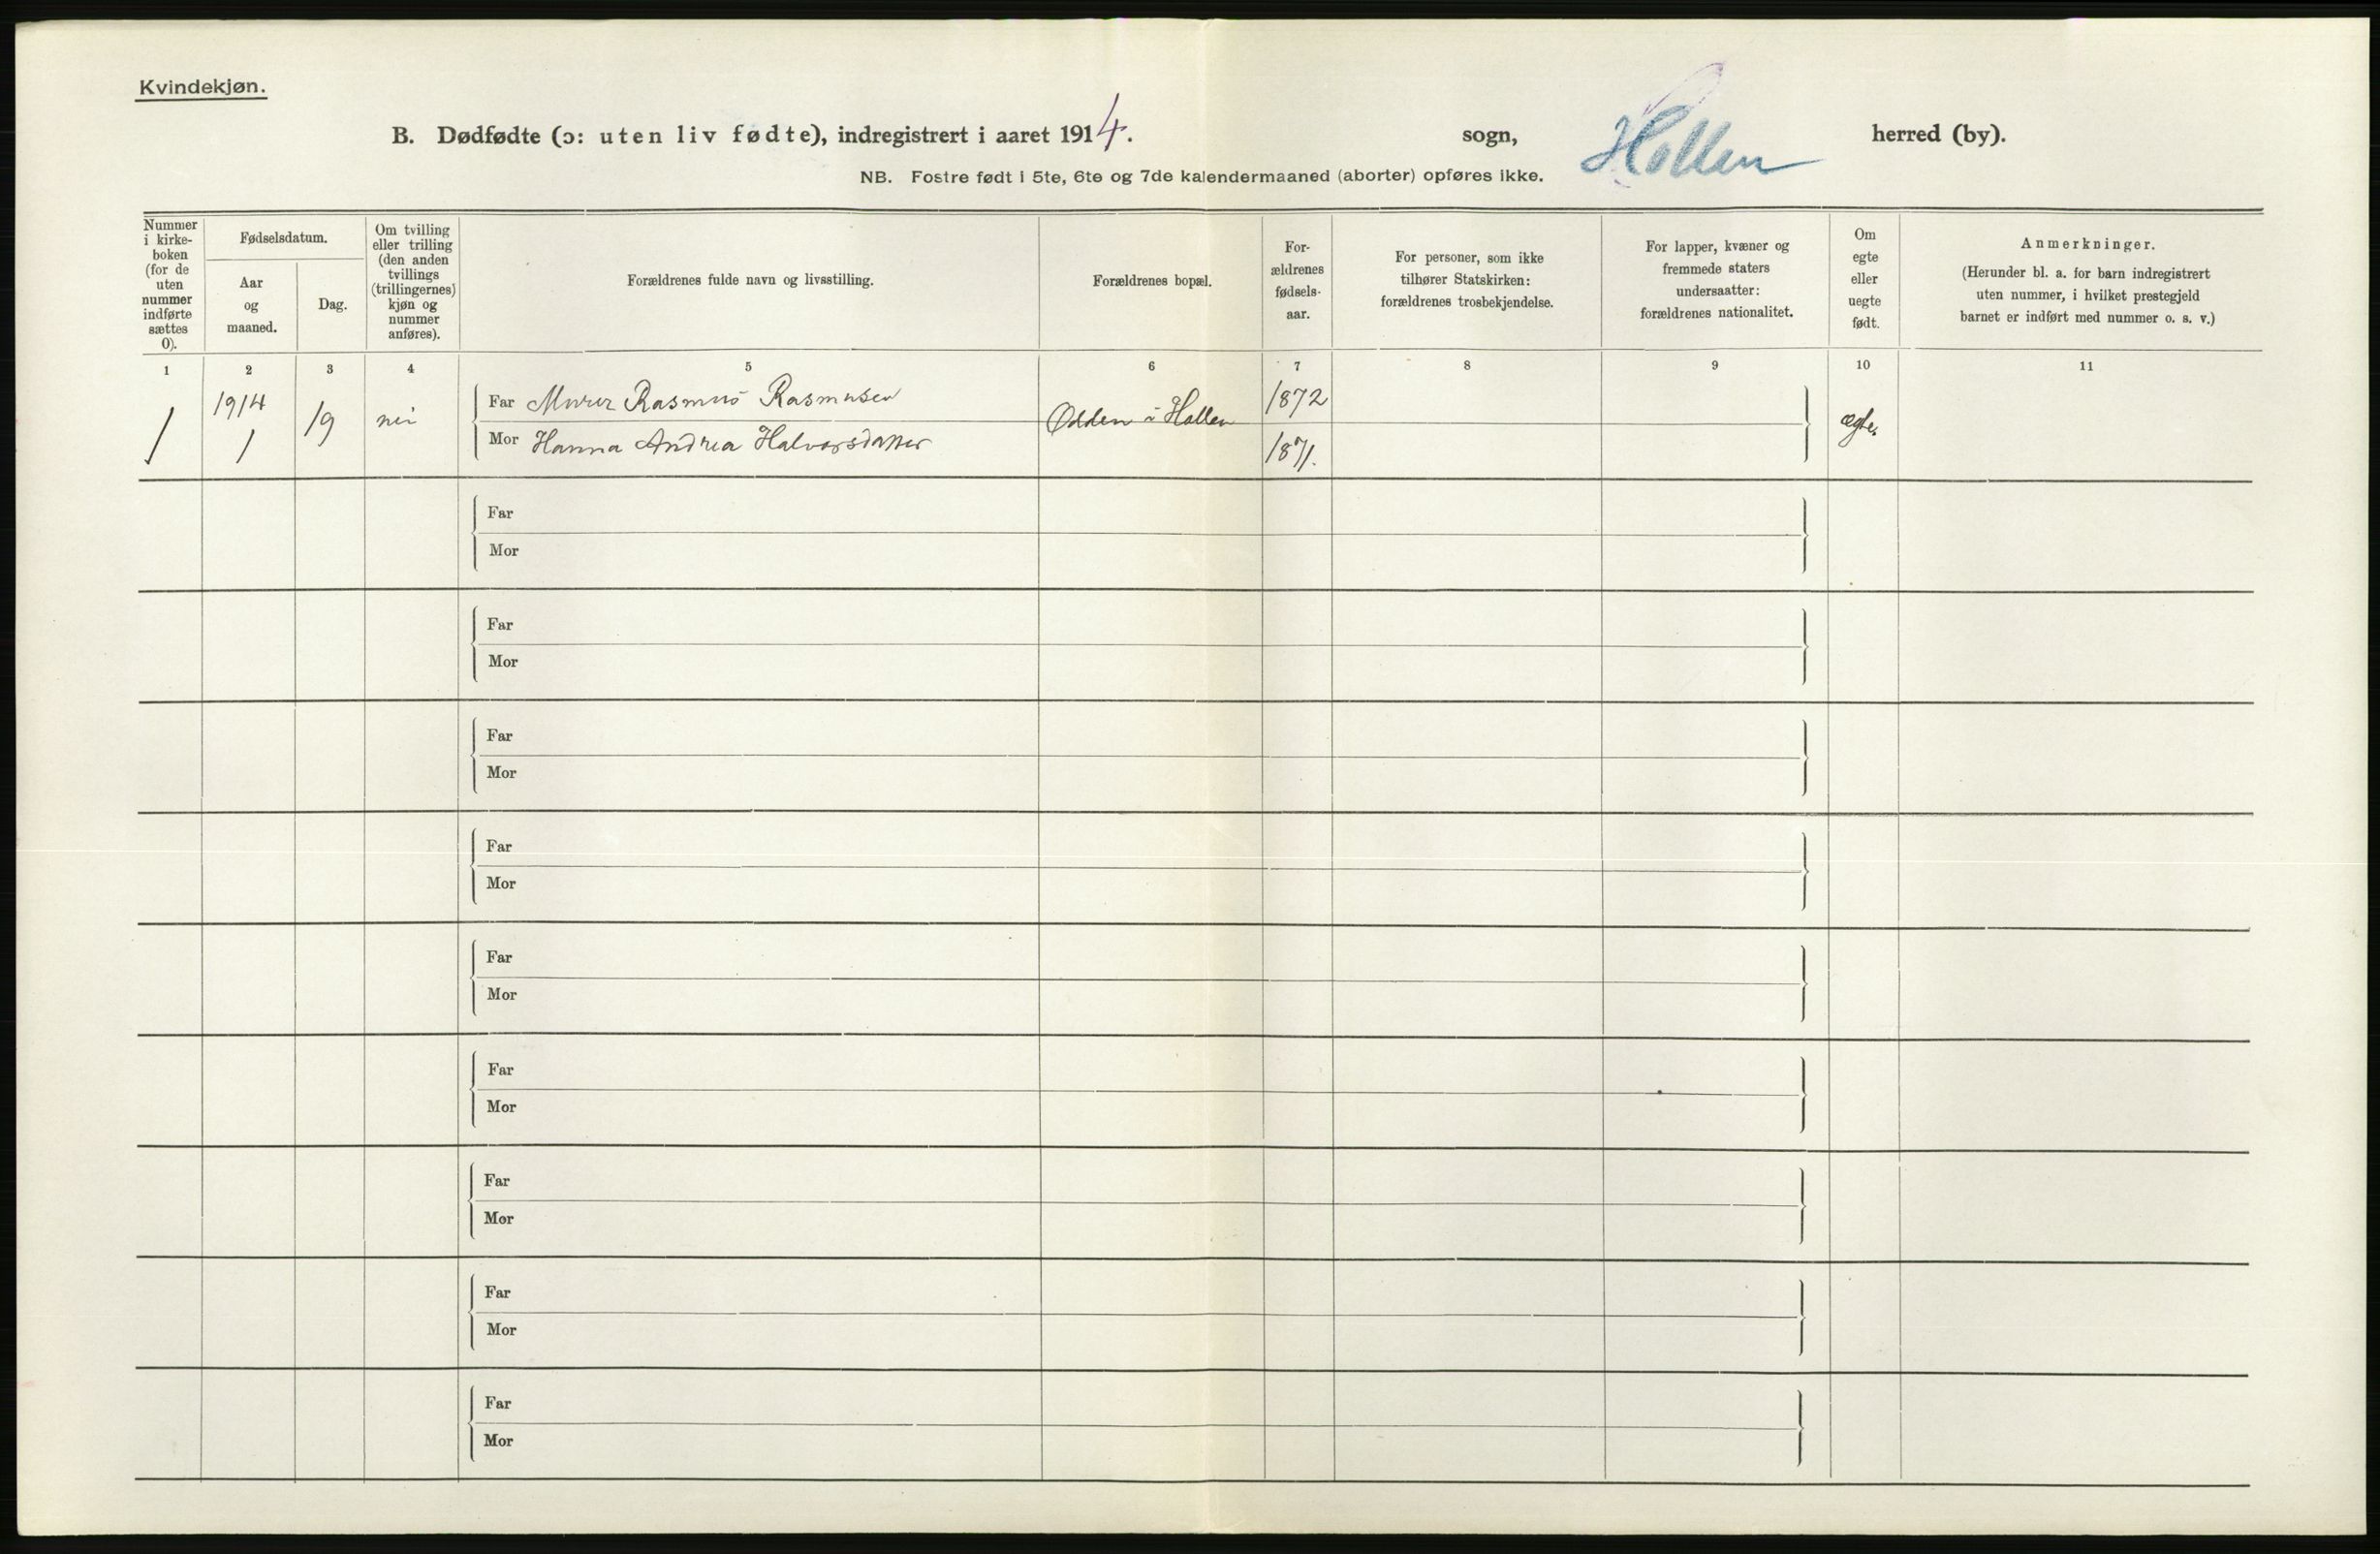 Kvindekjøn.
B. Dødfødte (ɔ: uten liv fødte), indregistrert i aaret 1914. sogn, Hollen herred (by).
NB. Fostre født i 5te, 6te og 7de kalendermaaned (aborter) opføres ikke.
Nummer i kirke-boken (for de uten nummer indførte sættes 0).
Fødselsdatum.
Aar og maaned.
Dag.
Om tvilling eller trilling (den anden tvillings (trillingernes) kjøn og nummer anføres).
Forældrenes fulde navn og livsstilling.
Forældrenes bopæl.
For-ældrenes fødsels-aar.
For personer, som ikke tilhører Statskirken: forældrenes trosbekjendelse.
For lapper, kvæner og fremmede staters undersaatter: forældrenes nationalitet.
Om egte eller uegte født.
Anmerkninger.
(Herunder bl. a. for barn indregistrert uten nummer, i hvilket prestegjeld barnet er indført med nummer o. s. v.)
1 2 3 4 5 6 7 8 9 10 11
1 1914 1 19 nei Far Murer Rasmus Rasmusen Odden i Hollen 1872 ægte.
Mor Hanna Andrea Halvorsdatter 1871.
Far
Mor
Far
Mor
Far
Mor
Far
Mor
Far
Mor
Far
Mor
Far
Mor
Far
Mor
Far
Mor